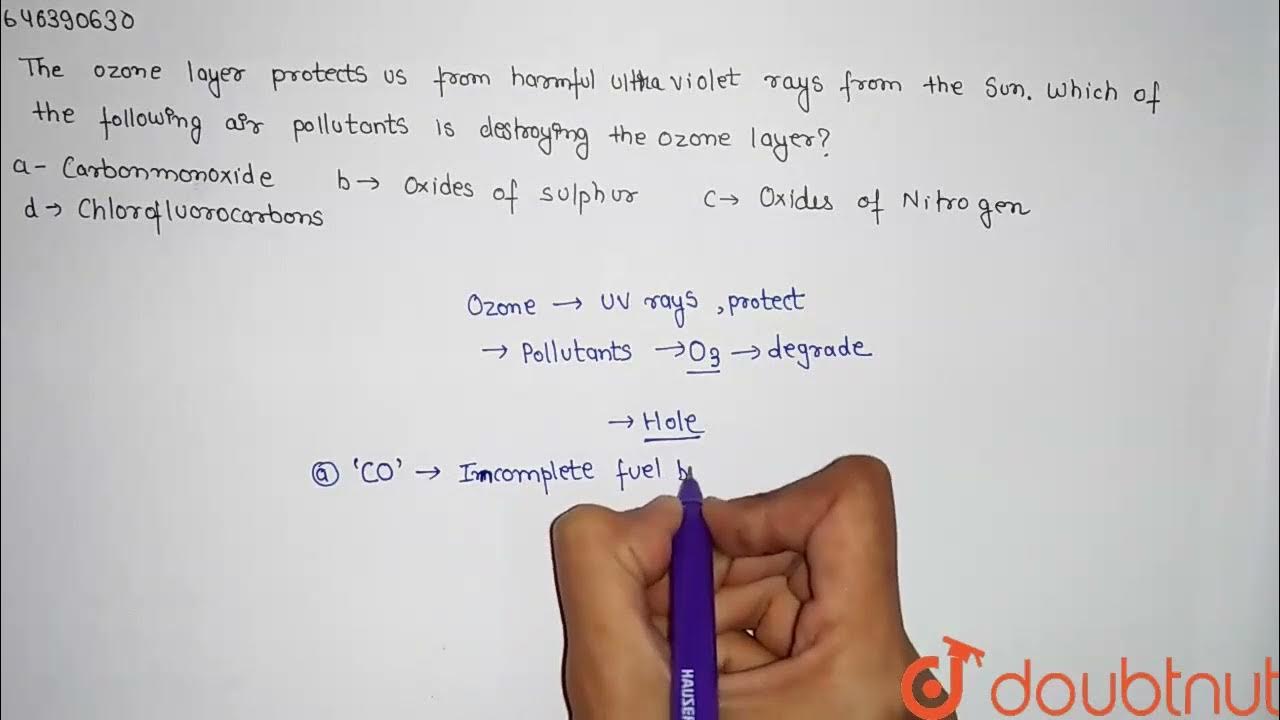 646390630
The ozone layer protects us from harmful ultra violet rays from the Sun. Which of
the following air pollutants is destroying the ozone layer?
a- Carbonmonoxide b→ Oxides of sulphur c→ Oxides of Nitrogen
d→ Chlorofluorocarbons
Ozone → UV rays, protect
→ Pollutants → O3 → degrade
→ Hole
ⓐ 'CO' → Incomplete fuel b
HAUSER
doubtnut